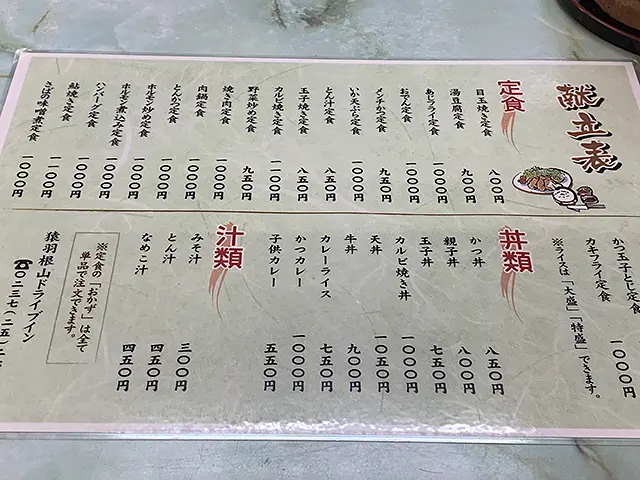 献立表
定食
目玉焼き定食 八〇〇円
湯豆腐定食 九〇〇円
あじフライ定食 一〇〇〇円
おでん定食 一〇〇〇円
メンチかつ定食 九五〇円
いか天ぷら定食 一〇〇〇円
とん汁定食 八五〇円
玉子焼き定食 八五〇円
カルビ焼き定食 一一〇〇円
野菜炒め定食 九五〇円
焼き肉定食 一〇〇〇円
肉鍋定食 一〇〇〇円
とんかつ定食 一〇〇〇円
ホルモン炒め定食 一〇〇〇円
ホルモン煮込み定食 一〇〇〇円
ハンバーグ定食 一〇〇〇円
鮎焼き定食 一〇〇〇円
さばの味噌煮定食 一〇〇〇円
かつ玉子とじ定食
カキフライ定食 一〇〇〇円
※ライスは「大盛」「特盛」できます。
丼類
かつ丼 八五〇円
親子丼 八〇〇円
玉子丼 七五〇円
カルビ焼き丼 一〇〇〇円
天丼 一〇五〇円
牛丼 九〇〇円
カレーライス 七五〇円
かつカレー 一〇〇〇円
子供カレー 五五〇円
汁類
みそ汁 三〇〇円
とん汁 四五〇円
なめこ汁 四五〇円
※定食の「おかず」は全て
単品で注文できます。
猿羽根山ドライブイン
☎〇二三七(二五)二